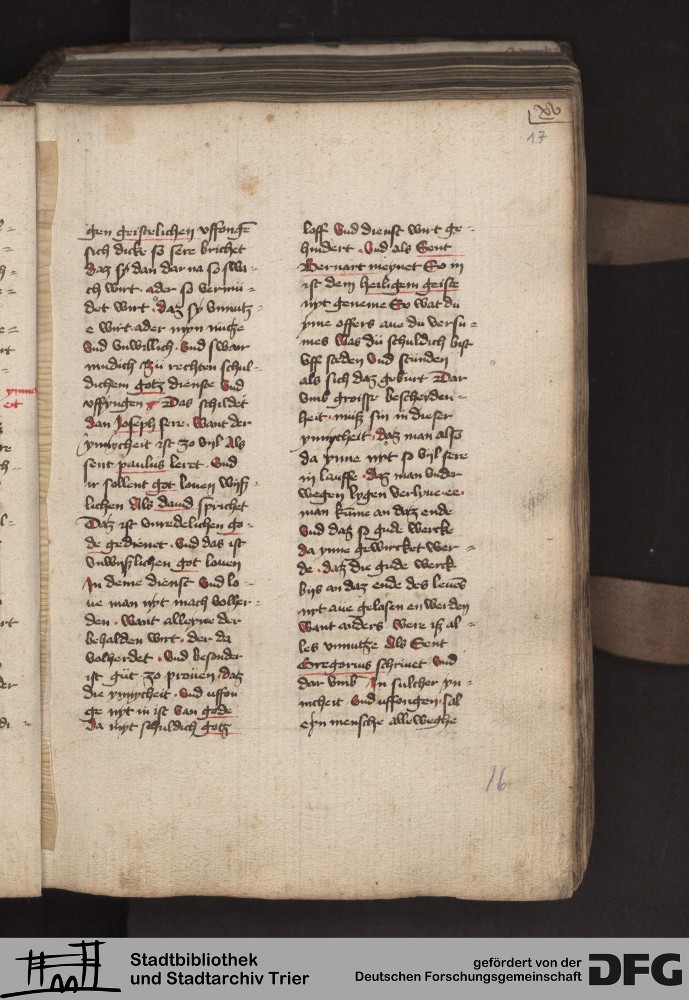 17
gen geistlichen vffonge
sich dicke so sere brichet
Daz sy dan dar na so swi-
ch wirt. ader so vermü-
det wirt. daz sy vnnutz-
e wirt. ader myn nutze
Vnd vnwillich. Vnd swar
mudich zü rechten schul-
dichem gotz dienste Vnd
vffongen Das schildet
dan Joseph sere. Want der
ynnycheit ist zo vyl Als
sent paulus leret. Vnd
ir sollent got louen wyß-
lichen Als dauid sprichet
Daz ist vnredelichen go-
de gedienet. Vnd das ist
Vnwyßlichen got louen
In deme dienst Vnd lo-
ue man nyt mach volher-
den. Want alleyne der
behalden wirt. der da
volherdet. Vnd besonder
ist güt zo prouen. daz
die ynnycheit. Vnd vffon
ge nyt in ist Van gode
Da myt schuldich gotz
loff Vnd dienst wirt ge-
hindert. Vnd als Sent
Bernart meynet So in
ist dem heiligem geiste
nyt geneme So wat du
yme offers aue du versu-
mes Was dü schuldich bist
Vff steden Vnd stunden
als sich daz geburt Dar
vmb groisse bescheyden-
heit. müß sin in dieser
ynnycheit. daz man also
da ynne nyt so vyl sere
in lauffe. daz man vnder
wegen lygen verlyue. ee.
man küme an daz ende
Vnd daz so gude wercke
da ynne gewircket wer-
de. daz die gude werck
byß an daz ende des leuens
nyt aue gelasen en werden
Want anders were iß al-
les vnnutze Als Sent
Gregorius schriuet Vnd
dar vmb In sulcher yn-
nicheit Vnd vffongen. sal
eyn mensche alleweghe
16
Stadtbibliothek
und Stadtarchiv Trier
gefördert von der
Deutschen Forschungsgemeinschaft
DFG